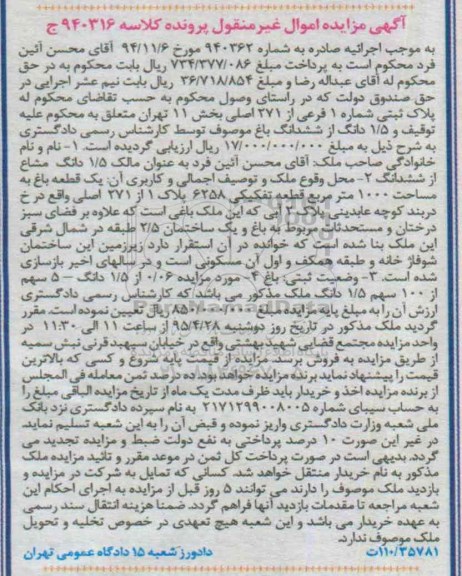 آگهی مزایده اموال غیرمنقول پرونده کلاسه ۹۴۰۳۱۶ ج
به موجب اجرائیه صادره به شماره ۹۴۰۳۶۲ مورخ ۹۴/۱۱/۶ آقای محسن آئین
فرد محکوم است به پرداخت مبلغ ۷۳۴/۳۷۷/۰۸۶ ریال بابت محکوم به در حق
محکوم له آقای عبداله رضا و مبلغ ۳۶/۷۱۸/۸۵۴ ریال بابت نیم عشر اجرایی در
حق صندوق دولت که در راستای وصول محکوم به حسب تقاضای محکوم له
پلاک ثبتی شماره ۱ فرعی از ۲۷۱ اصلی بخش ۱۱ تهران متعلق به محکوم علیه
توقیف و ۱/۵ دانگ از ششدانگ باغ موصوف توسط کارشناس رسمی دادگستری
به شرح ذیل به مبلغ ۱۷/۰۰۰/۰۰۰/۰۰۰ ریال ارزیابی گردیده است. ۱- نام و نام
خانوادگی صاحب ملک: آقای محسن آئین فرد به عنوان مالک ۱/۵ دانگ مشاع
از ششدانگ ۲- محل وقوع ملک و توصیف اجمالی و کاربری آن: یک قطعه باغ به
مساحت ۱۰۰۰ متر مربع قطعه تفکیکی ۶۲۵۸ پلاک ۱ از ۲۷۱ اصلی واقع در خ
دربند کوچه عابدینی پلاک ۲ آبی که این ملک باغی است که علاوه بر فضای سبز
درختان و مستحدثات مربوط به باغ و یک ساختمان ۲/۵ طبقه در شمال شرقی
این ملک بنا شده است که خوانده در آن استقرار دارد زیرزمین این ساختمان
شوفاژ خانه و طبقه همکف و اول آن مسکونی است و در سالهای اخیر بازسازی
شده است. ۳- وضعیت ثبتی: باغ ۴- مورد مزایده ۰/۰۶ از ۱/۵ دانگ – ۵ سهم
از ۱۰۰ سهم ۱/۵ دانگ ملک مذکور می باشد که کارشناس رسمی دادگستری
ارزش آن را به مبلغ پایه مزایده مبلغ ریال تعیین نموده است. مقرر
گردید ملک مذکور در تاریخ روز دوشنبه ۹۵/۴/۲۸ از ساعت ۱۱ الی ۱۱:۳۰ در
واحد مزایده مجتمع قضایی شهید بهشتی واقع در خیابان سپهبد قرنی نبش سمیه
از طریق مزایده به فروش برسد. مزایده از قیمت پایه شروع و کسی که بالاترین
قیمت را پیشنهاد نماید برنده مزایده خواهد بود. ده درصد ثمن معامله فی المجلس
از برنده مزایده اخذ و خریدار باید ظرف مدت یک ماه از تاریخ مزایده الباقی مبلغ را
به حساب سیبای شماره ۲۱۷۱۲۹۹۰۰۸۰۰۵ به نام سپرده دادگستری نزد بانک
ملی شعبه وزارت دادگستری واریز نموده و قبض آن را به این شعبه تسلیم نماید.
در غیر این صورت ۱۰ درصد پرداختی به نفع دولت ضبط و مزایده تجدید می
گردد. بدیهی است در صورت پرداخت کل ثمن در موعد مقرر و تائید مزایده ملک
مذکور به نام خریدار منتقل خواهد شد. کسانی که تمایل به شرکت در مزایده و
بازدید ملک موصوف را دارند می توانند ۵ روز قبل از مزایده به اجرای احکام این
شعبه مراجعه تا مقدمات بازدید آنها فراهم گردد. ضمنا هزینه انتقال سند رسمی
به عهده خریدار می باشد و این شعبه هیچ تعهدی در خصوص تخلیه و تحویل
ملک موصوف ندارد.
۱۱۰/۳۵۷۸۱ت دادورز شعبه ۱۵ دادگاه عمومی تهران